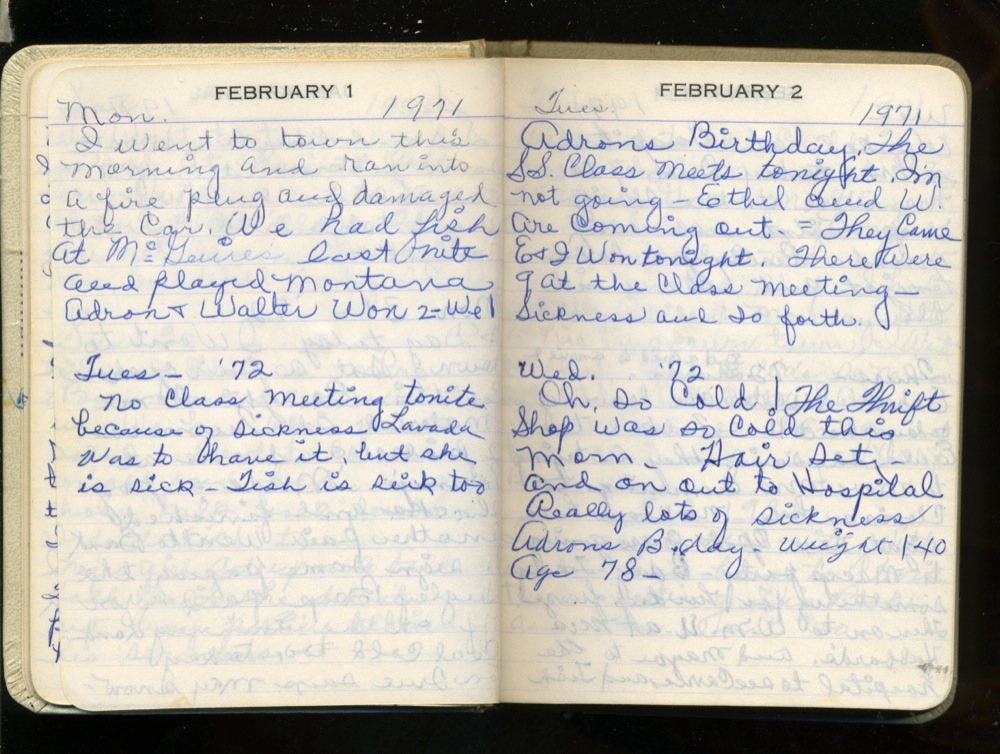 FEBRUARY 1
Mon. 1971
I went to town this
morning and ran into
a fire plug and damaged
the Car. We had fish
at Mc last nite
and played Montana
Adron & Walter Won 2 - We 1
Tues - '72
No Class Meeting tonite
because of sickness Lavada
was to have it, but she
is sick - Tish is sick too
FEBRUARY 2
Tues. 1971
Adrons Birthday. The
S.S. Class meets tonight. Im
not going - Ethel and W.
are coming out. = They Came
E & I Won tonight. There Were
9 at the Class meeting -
Sickness and so forth.
Wed. '72
Oh, so Cold! The Thrift
Shop was so Cold this
morn - Hair Set, -
and on out to Hospital
Really lots of sickness
Adrons B.day. Weight 140
Age 78 -